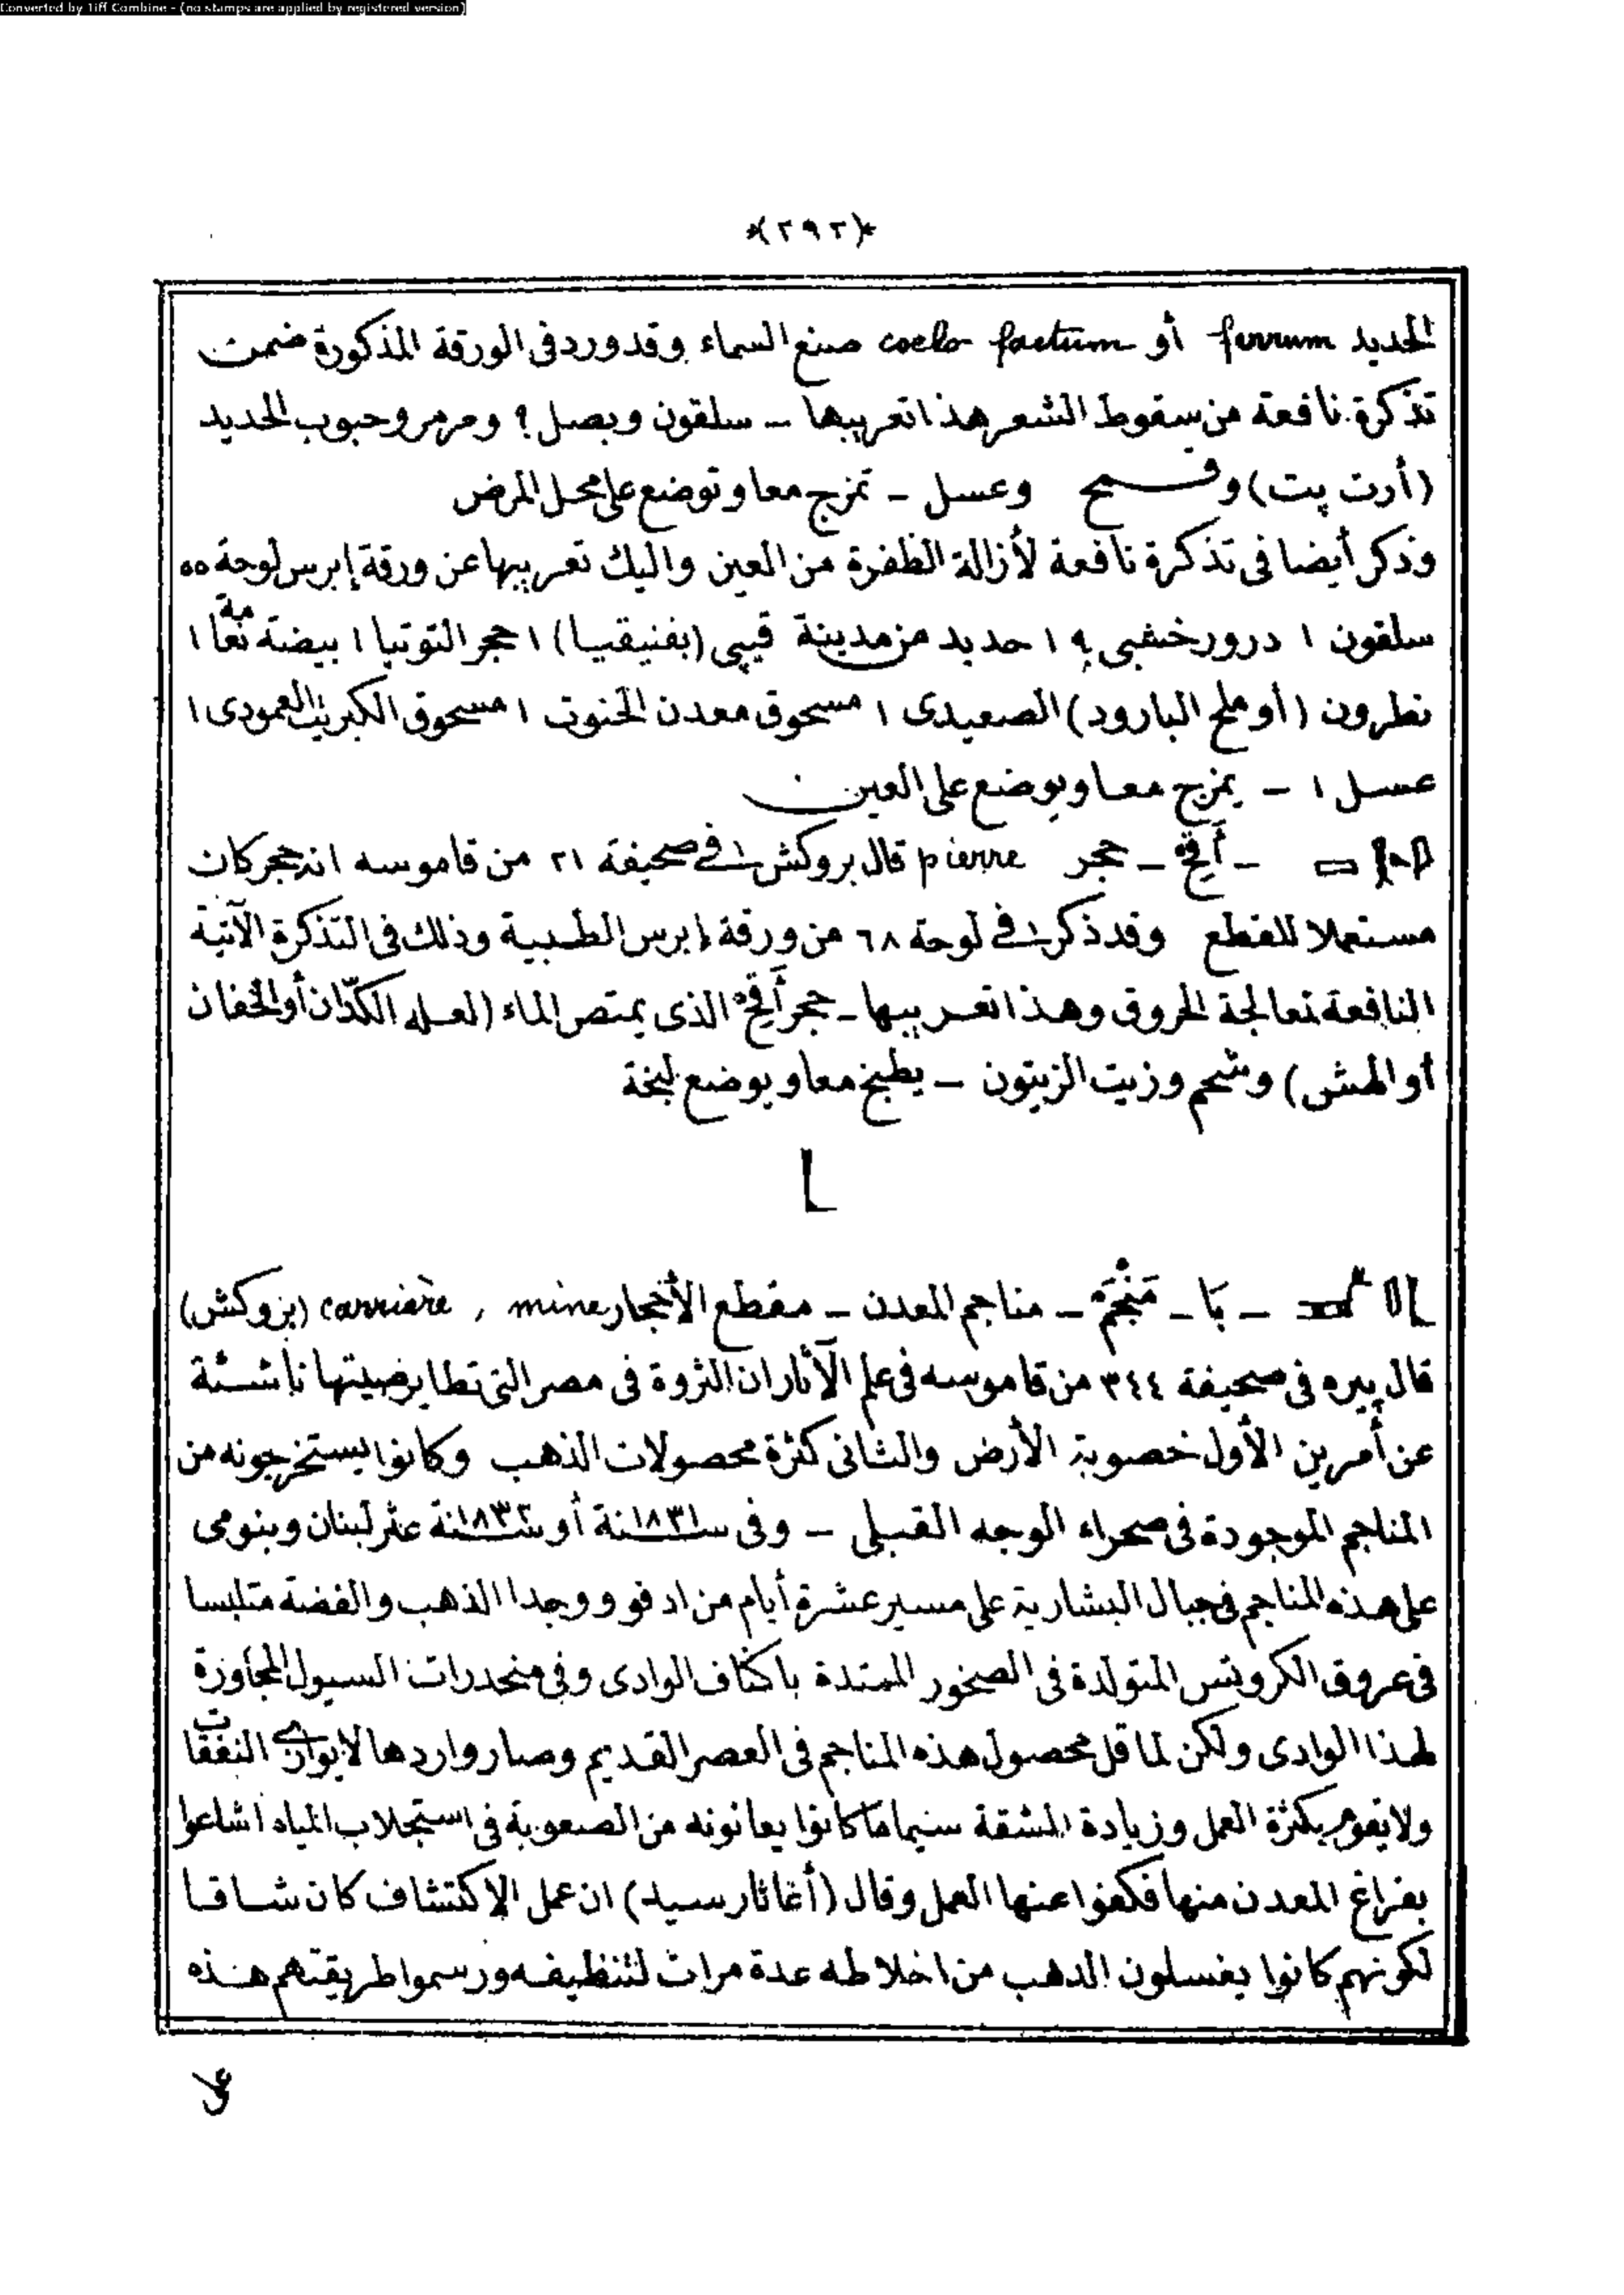 Converted by Tiff Combine - (no stamps are applied by registered version)
*(٢٩٢)*
الحديد ferrum أو coelo factum صنع السماء وقد ورد فى الورقة المذكورة ضمن
تذكرة نافعة من سقوط الشعر هذا تعريبها – سلقون وبصل ؟ ومرمر وحبوب الحديد
(أرت پت) وقمح وعسل – تمزج معا وتوضع على محل المرض
وذكر أيضا فى تذكرة نافعة لأزالة الظفرة من العين واليك تعريبها عن ورقة إبرس لوحة ٥٥
سلقون ١ درور خشبى ؟ ١ حديد من مدينة قيپى (بفنيقيا) ١ حجر التوتيا ١ بيضة نعامة ١
نطرون (أو ملح البارود) الصعيدى ١ مسحوق معدن الخنوت ١ مسحوق الكبريت العمودى ١
عسل ١ – يمزج معا ويوضع على العين
– أَقِحُ – حجر pierre قال بروكش فى صحيفة ٢١ من قاموسه انه حجر كان
مستعملا للقطع وقد ذكر فى لوحة ٦٨ من ورقة إبرس الطبية وذلك فى التذكرة الآتية
النافعة لمعالجة الحروق وهذا تعريبها – حجر أَقِحُ الذى يمتص الماء (لعله الكدّان أو الخفان
أو الهش) وشحم وزيت الزيتون – يطبخ معا ويوضع لبخة
– بَا – مَنْجَم – مناجم المعدن – مقطع الأحجار mine , carrière (بروكش)
قال پيره فى صحيفة ٣٤٤ من قاموسه فى علم الآثار ان الثروة فى مصر التى تطاير صيتها ناشئة
عن أمرين الأول خصوبة الأرض والثانى كثرة محصولات الذهب وكانوا يستخرجونه من
المناجم الموجودة فى صحراء الوجه القبلى – وفى سنة ١٨٣١ أو سنة ١٨٣٢ عثر لبنان وبنومى
على هذه المناجم فى جبال البشارية على مسير عشرة أيام من ادفو ووجدا الذهب والفضة متلبسا
فى عروق الكروتس المتولدة فى الصخور الممتدة باكناف الوادى وفى منحدرات السيول المجاورة
لهذا الوادى ولكن لما قل محصول هذه المناجم فى العصر القديم وصار واردها لا يوازى النفقات
ولا يقوم بكثرة العمل وزيادة المشقة سيما ما كانوا يعانونه من الصعوبة فى استجلاب المياه اشاعوا
بفراغ المعدن منها فكفوا عنها العمل وقال (أغاثارسيد) ان عمل الاكتشاف كان شاقا
لكونهم كانوا يغسلون الذهب من اخلاطه عدة مرات لتنظيفه ورسموا طريقتهم هذه
على